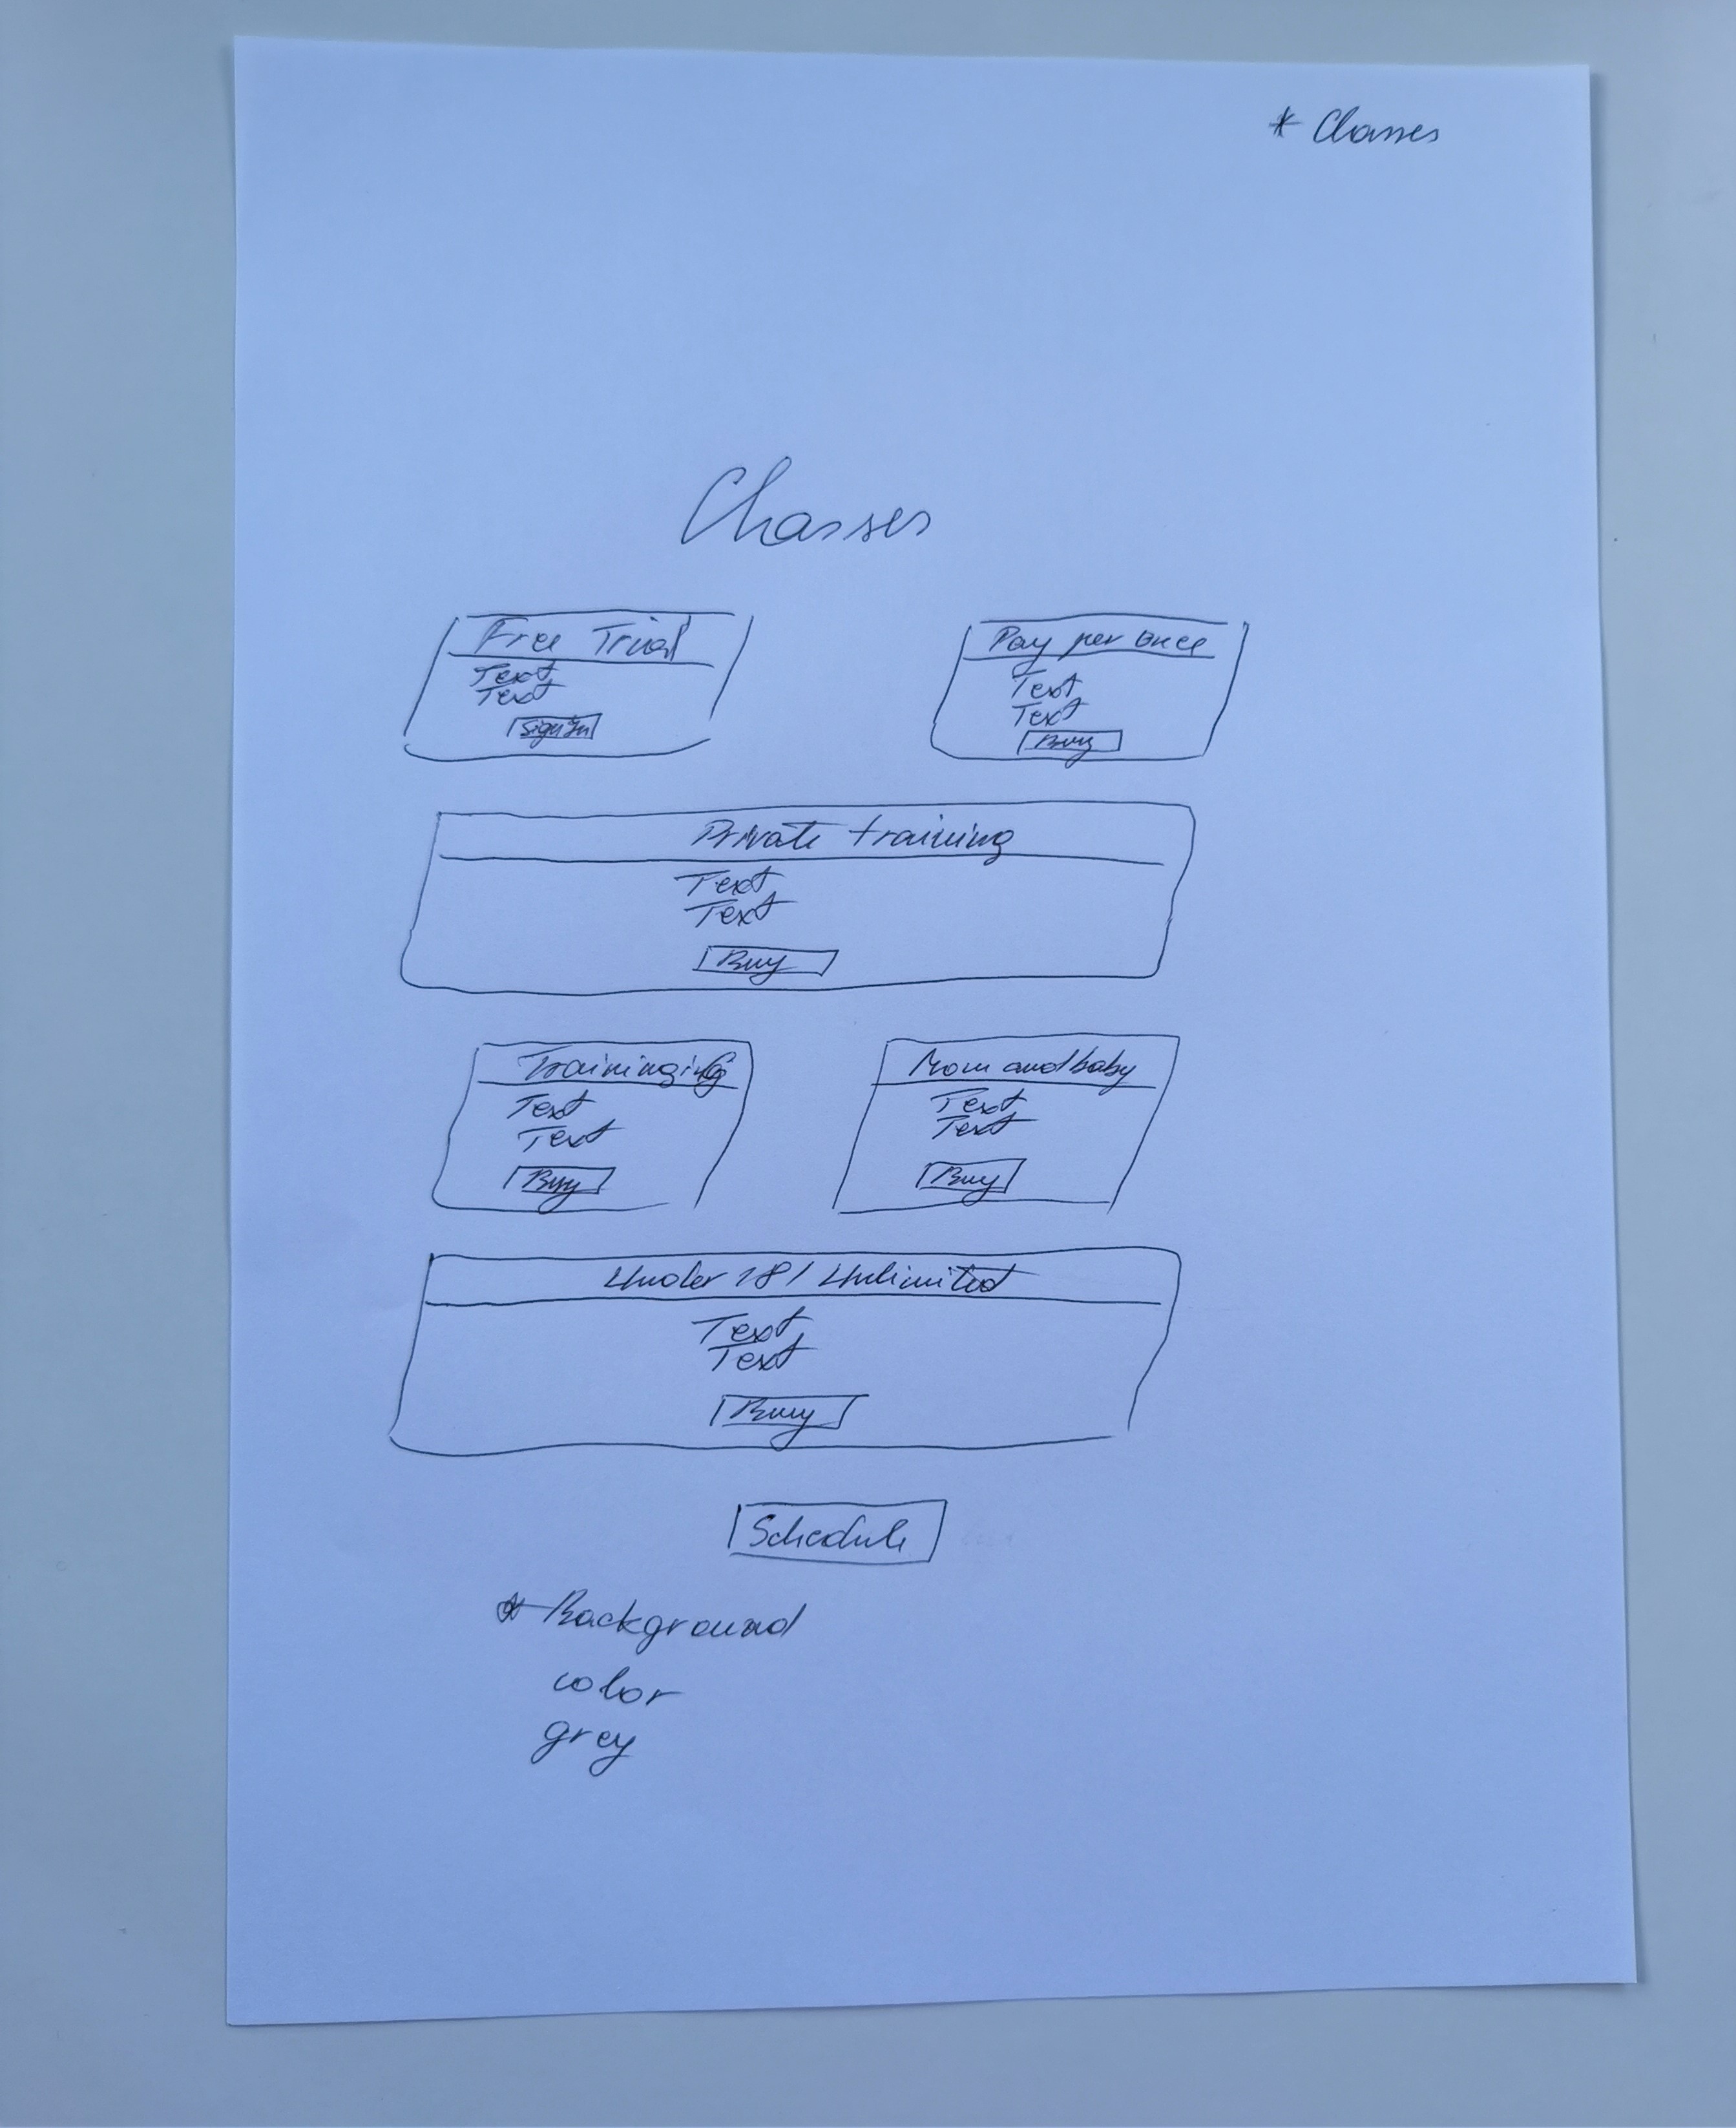 * Classes
Classes
Free Trial
Text
Text
Sign In
Pay per once
Text
Text
Buy
Private training
Text
Text
Buy
Text
Text
Buy
Mom and baby
Text
Text
Buy
Under 18 / Unlimited
Text
Text
Buy
Schedule
* Background
color
grey